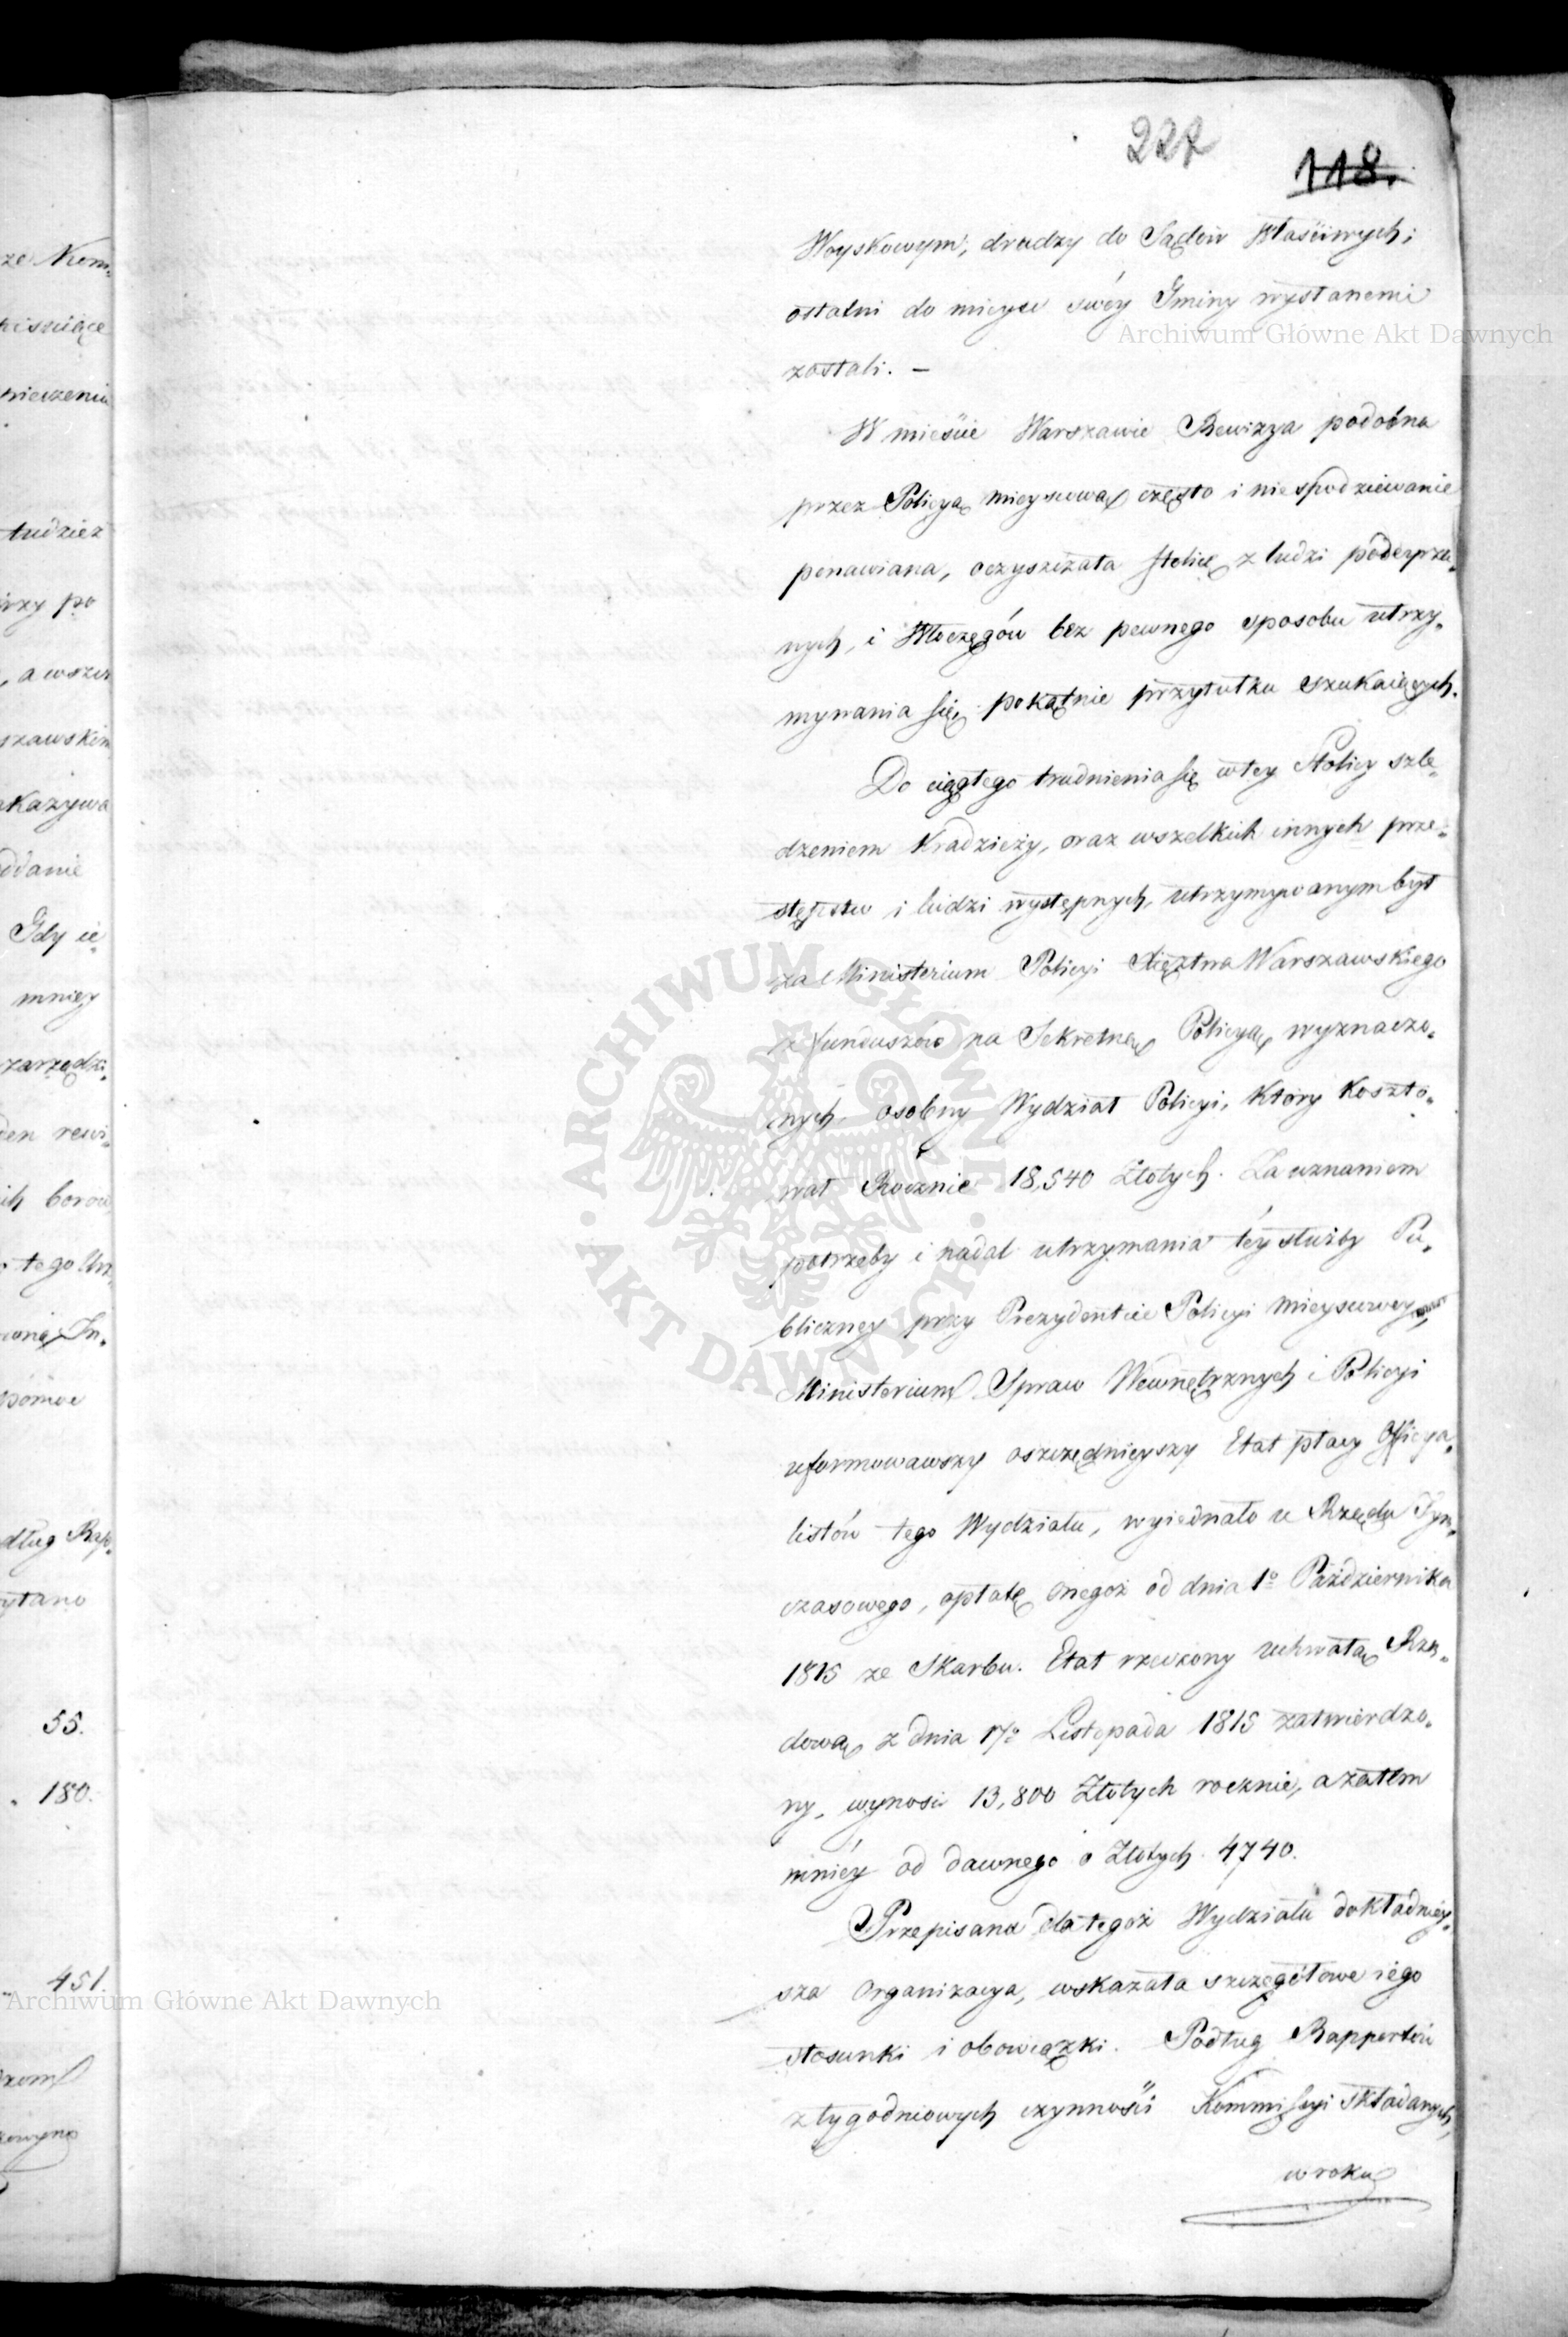 227
118.
Woyskowym, drudzy do Sądów Właściwych;
ostatni do mieysc swéy Gminy wysłanemi
zostali. —
W mieście Warszawie Rewizya podobna
przez Policyą mieyscową często i niespodziewanie
ponawiana, oczyszczała stolicę z ludzi podeyrza„
nych, i Włoczęgów bez pewnego sposobu utrzy„
mywania się, pokątnie przytułku szukaiących.
Do ciągłego trudnienia się w tey Stolicy szle„
dzeniem Kradzieży, oraz wszelkich innych prze„
stępstw i ludzi występnych, utrzymywanym był
za Ministerium Policyi Xięztwa Warszawskiego
z funduszów na Sekretną Policyą wyznaczo„
nych osobny Wydział Policyi, który koszto„
wał Rocznie 18,540 Złotych. Za uznaniem
potrzeby i nadal utrzymania téy służby Pu„
bliczney przy Prezydentcie Policyi mieyscowey,
Ministerium Spraw Wewnętrznych i Policyi
uformowawszy oszczędnieyszy Etat płacy Officya„
listów tego Wydziału, wyiednało u Rządu Tym„
czasowego, opłatę onegoż od dnia 1º Października
1815 ze Skarbu. Etat rzeczony uchwałą Rzą„
dową z dnia 17º Listopada 1815 zatwierdzo„
ny, wynosi 13,800 Złotych rocznie, a zatem
mniéy od dawnego o Złotych 4740.
Przepisana dla tegoż Wydziału dokładniéy„
sza Organizacya, wskazała szczegółowe iego
stosunki i obowiązki. Podług Rapportów
z tygodniowych czynności Kommissyi składanych,
w roku
ze Kom„
tudzież
rzy po
, a wszcz
szawskim
akazywa
ddanie
Gdy ie„
mniey
zarządzi„
den rewi„
ich borow
tego Urz
dług Rap„
ytano
55.
„ 180.
451.
Archiwum Główne Akt Dawnych
Archiwum Główne Akt Dawnych
ARCHIWUM GŁÓWNE · AKT DAWNYCH ·